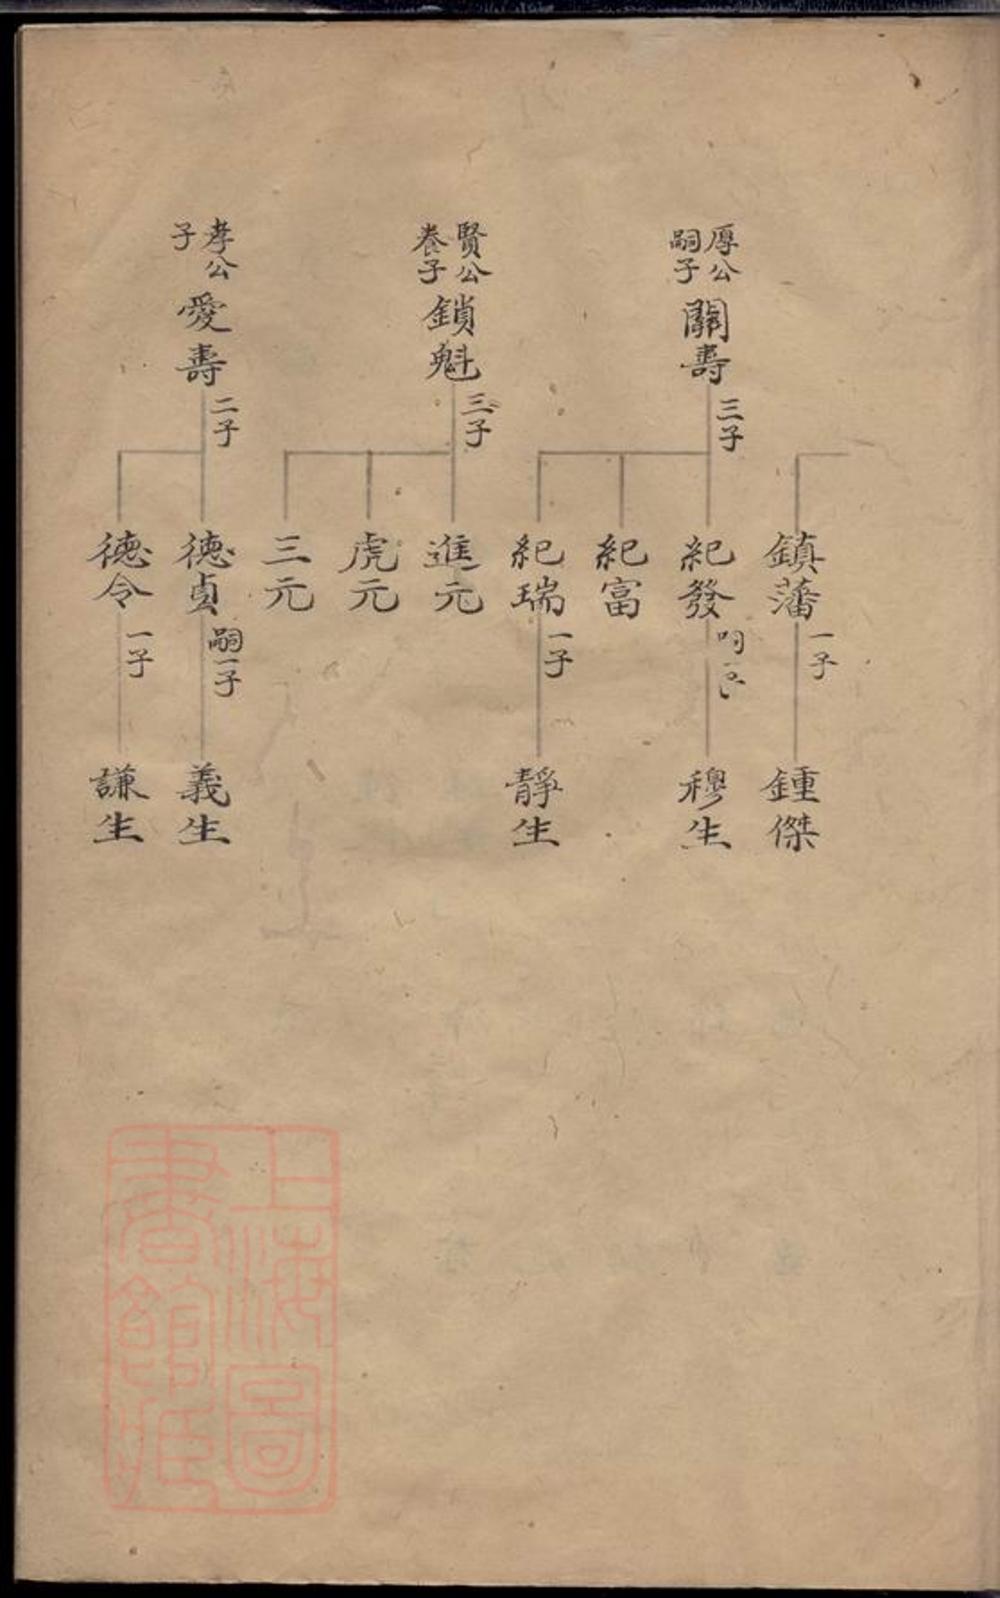 鎮藩
一子
鍾傑
厚公
嗣子
關壽
三子
紀發
穆生
紀富
紀瑞
一子
靜生
賢公
養子
鎖魁
三子
進元
虎元
三元
孝公
子
愛壽
二子
德貞
嗣一子
義生
德令
一子
謙生
上海圖
書館藏